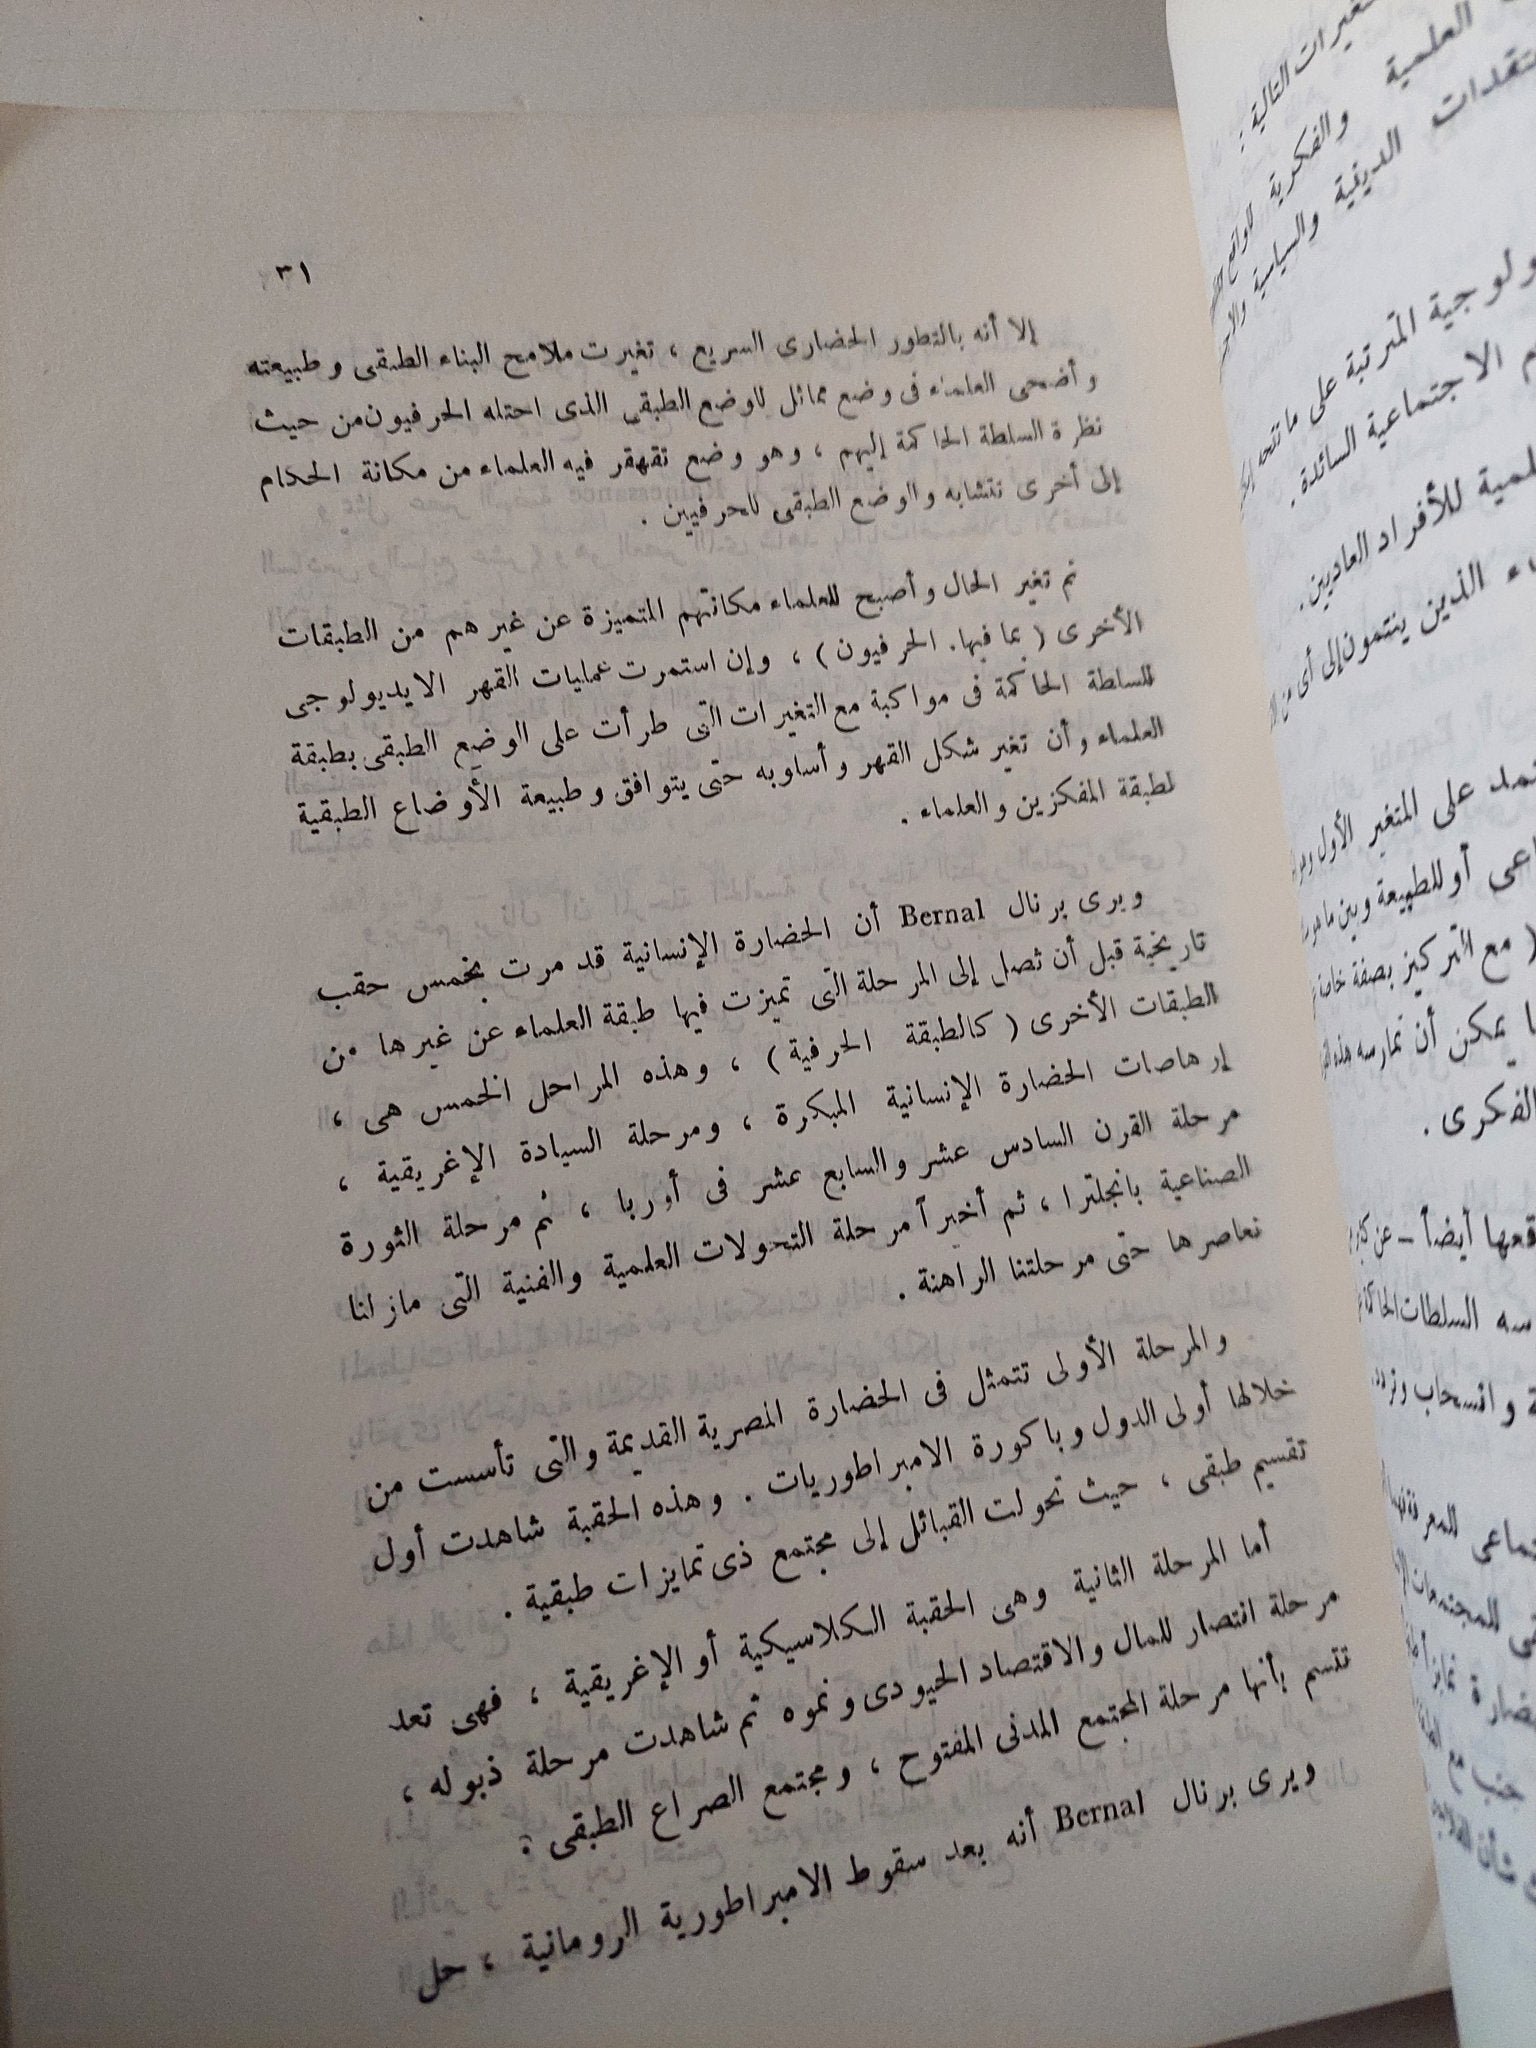 ٣١
إلا أنه بالتطور الحضارى السريع ، تغيرت ملامح البناء الطبقى وطبيعته
وأضحى العلماء فى وضع مماثل للوضع الطبقى الذى احتله الحرفيون من حيث
نظرة السلطة الحاكمة إليهم ، وهو وضع تقهقر فيه العلماء من مكانة الحكام
إلى أخرى تتشابه والوضع الطبقى للحرفيين .
ثم تغير الحال وأصبح للعلماء مكانتهم المتميزة عن غيرهم من الطبقات
الأخرى ( بما فيها . الحرفيون ) ، وإن استمرت عمليات القهر الايديولوجى
للسلطة الحاكمة فى مواكبة مع التغيرات التى طرأت على الوضع الطبقى بطبقة
العلماء وأن تغير شكل القهر وأسلوبه حتى يتوافق وطبيعة الأوضاع الطبقية
لطبقة المفكرين والعلماء .
ويرى برنال Bernal أن الحضارة الإنسانية قد مرت بخمس حقب
تاريخية قبل أن تصل إلى المرحلة التى تميزت فيها طبقة العلماء عن غيرها من
الطبقات الأخرى ( كالطبقة الحرفية ) ، وهذه المراحل الخمس هى ،
إرهاصات الحضارة الإنسانية المبكرة ، ومرحلة السيادة الإغريقية ،
مرحلة القرن السادس عشر والسابع عشر فى أوربا ، ثم مرحلة الثورة
الصناعية بانجلترا ، ثم أخيراً مرحلة التحولات العلمية والفنية التى مازلنا
نعاصرها حتى مرحلتنا الراهنة .
والمرحلة الأولى تتمثل فى الحضارة المصرية القديمة والتى تأسست من
خلالها أولى الدول وباكورة الامبراطوريات . وهذه الحقبة شاهدت أول
تقسيم طبقى ، حيث تحولت القبائل إلى مجتمع ذى تمايزات طبقية .
أما المرحلة الثانية وهى الحقبة الكلاسيكية أو الإغريقية ، فهى تعد
مرحلة انتصار للمال والاقتصاد الحيودى ونموه ثم شاهدت مرحلة ذبوله ،
تتسم بأنها مرحلة المجتمع المدنى المفتوح ، ومجتمع الصراع الطبقى :
ويرى برنال Bernal أنه بعد سقوط الامبراطورية الرومانية ، حل
التالية :
العلمية والفكرية
الدينية والسياسية
المترتبة على ما تتحه
الاجتماعية السائدة .
للأفراد العاديين .
الذين ينتمون إلى أى من
على المتغير الأول
أو للطبيعة وبين ما هو
( مع التركيز بصفة خاصة
يمكن أن تمارسه هذه
الفكرى .
أيضاً – عن
السلطات الحاكمة
وانسحاب
للمعرفة
للمجتمعات
جنب مع
شأن